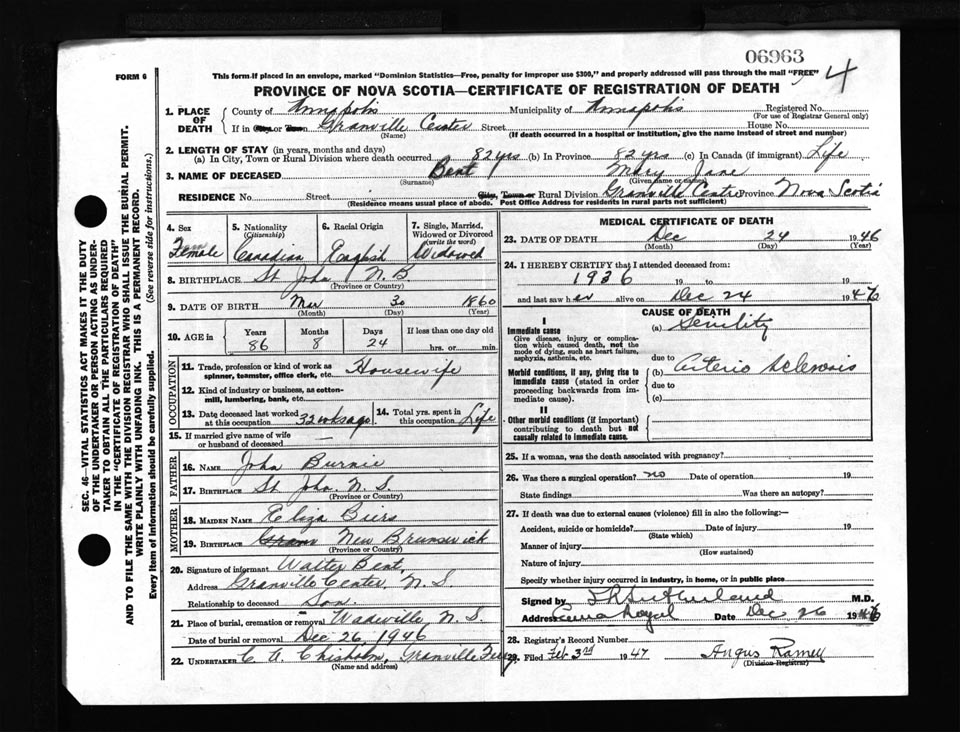 06963
4
FORM 6
This form if placed in an envelope, marked "Dominion Statistics—Free, penalty for improper use $300," and properly addressed will pass through the mail "FREE"
PROVINCE OF NOVA SCOTIA—CERTIFICATE OF REGISTRATION OF DEATH
SEC. 46—VITAL STATISTICS ACT MAKES IT THE DUTY
OF THE UNDERTAKER OR PERSON ACTING AS UNDER-
TAKER TO OBTAIN ALL THE PARTICULARS REQUIRED
IN THE "CERTIFICATE OF REGISTRATION OF DEATH"
AND TO FILE THE SAME WITH THE DIVISION REGISTRAR WHO SHALL ISSUE THE BURIAL PERMIT.
WRITE PLAINLY WITH UNFADING INK. THIS IS A PERMANENT RECORD.
Every item of information should be carefully supplied. (See reverse side for instructions.)
1. PLACE OF DEATH County of Annapolis Municipality of Annapolis Registered No.
(For use of Registrar General only)
If in City or Town Granville Center Street House No.
(Name) (If death occurred in a hospital or institution, give the name instead of street and number)
2. LENGTH OF STAY (in years, months and days)
(a) In City, Town or Rural Division where death occurred 82 yrs (b) In Province 82 yrs (c) In Canada (if immigrant) Life
3. NAME OF DECEASED Bent Mary Jane
(Surname) (Given name or names)
RESIDENCE No. Street City, Town or Rural Division Granville Centre Province Nova Scotia
(Residence means usual place of abode. Post Office Address for residents in rural parts not sufficient)
4. Sex Female
5. Nationality (Citizenship) Canadian
6. Racial Origin English
7. Single, Married, Widowed or Divorced (write the word) Widowed
8. BIRTHPLACE St John N.B
(Province or Country)
9. DATE OF BIRTH Mar 30 1860
(Month) (Day) (Year)
10. AGE in Years 86 Months 8 Days 24 If less than one day old hrs. or min.
OCCUPATION
11. Trade, profession or kind of work as spinner, teamster, office clerk, etc. Housewife
12. Kind of industry or business, as cotton-mill, lumbering, bank, etc.
13. Date deceased last worked at this occupation 32 wks ago
14. Total yrs. spent in this occupation Life
15. If married give name of wife or husband of deceased —
FATHER
16. NAME John Burnie
17. BIRTHPLACE St John N.S.
(Province or Country)
MOTHER
18. MAIDEN NAME Eliza Biers
19. BIRTHPLACE New Brunswick
(Province or Country)
20. Signature of informant Walter Bent,
Address Granville Center, N.S.
Relationship to deceased Son.
21. Place of burial, cremation or removal Wadeville, N.S.
Date of burial or removal Dec 26, 1946
22. UNDERTAKER C. A. Chisholm, Granville Ferry
(Name and address)
MEDICAL CERTIFICATE OF DEATH
23. DATE OF DEATH Dec 24 1946
(Month) (Day) (Year)
24. I HEREBY CERTIFY that I attended deceased from:
1936 19 to 19
and last saw her alive on Dec 24 1946
CAUSE OF DEATH
I
Immediate cause (a) Senility
Give disease, injury or complication which caused death, not the mode of dying, such as heart failure, asphyxia, asthenia, etc.
due to
Morbid conditions, if any, giving rise to immediate cause (stated in order proceeding backwards from immediate cause). (b) Arterio Sclerosis
due to
(c)
II
Other morbid conditions (if important) contributing to death but not causally related to immediate cause.
25. If a woman, was the death associated with pregnancy?
26. Was there a surgical operation? no Date of operation 19
State findings Was there an autopsy?
27. If death was due to external causes (violence) fill in also the following:—
Accident, suicide or homicide? Date of injury 19
(State which)
Manner of injury
(How sustained)
Nature of injury
Specify whether injury occurred in industry, in home, or in public place
Signed by Sutherland M.D.
Address Date Dec 26 1946
28. Registrar's Record Number
29. Filed Feb 3rd 1947 Angus Ramey
(Division Registrar)